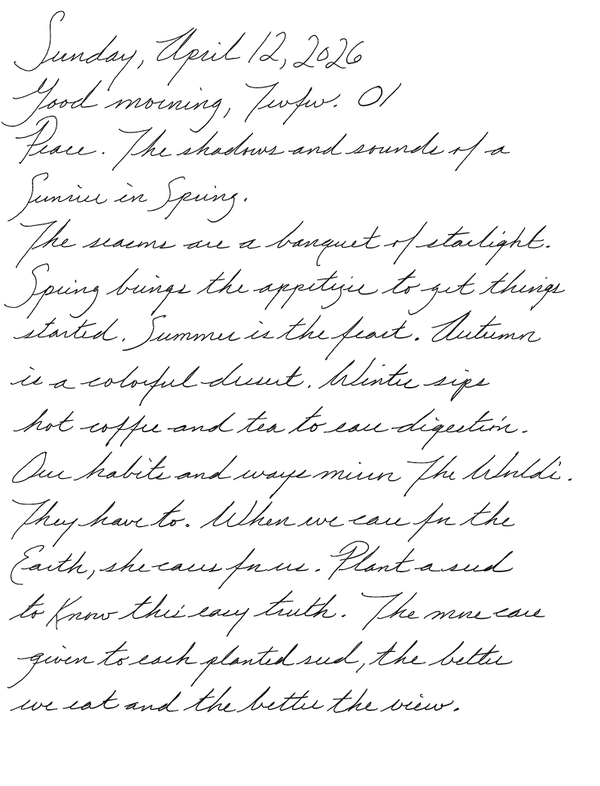 Sunday, April 12, 2026
Good morning, Twfw. 01
Peace. The shadows and sounds of a
Sunrise in Spring.
The seasons are a banquet of starlight.
Spring brings the appetizer to get things
started. Summer is the feast. Autumn
is a colorful dessert. Winter sips
hot coffee and tea to ease digestion.
Our habits and ways mirror The World's.
They have to. When we care for the
Earth, she cares for us. Plant a seed
to Know this easy truth. The more care
given to each planted seed, the better
we eat and the better the view.